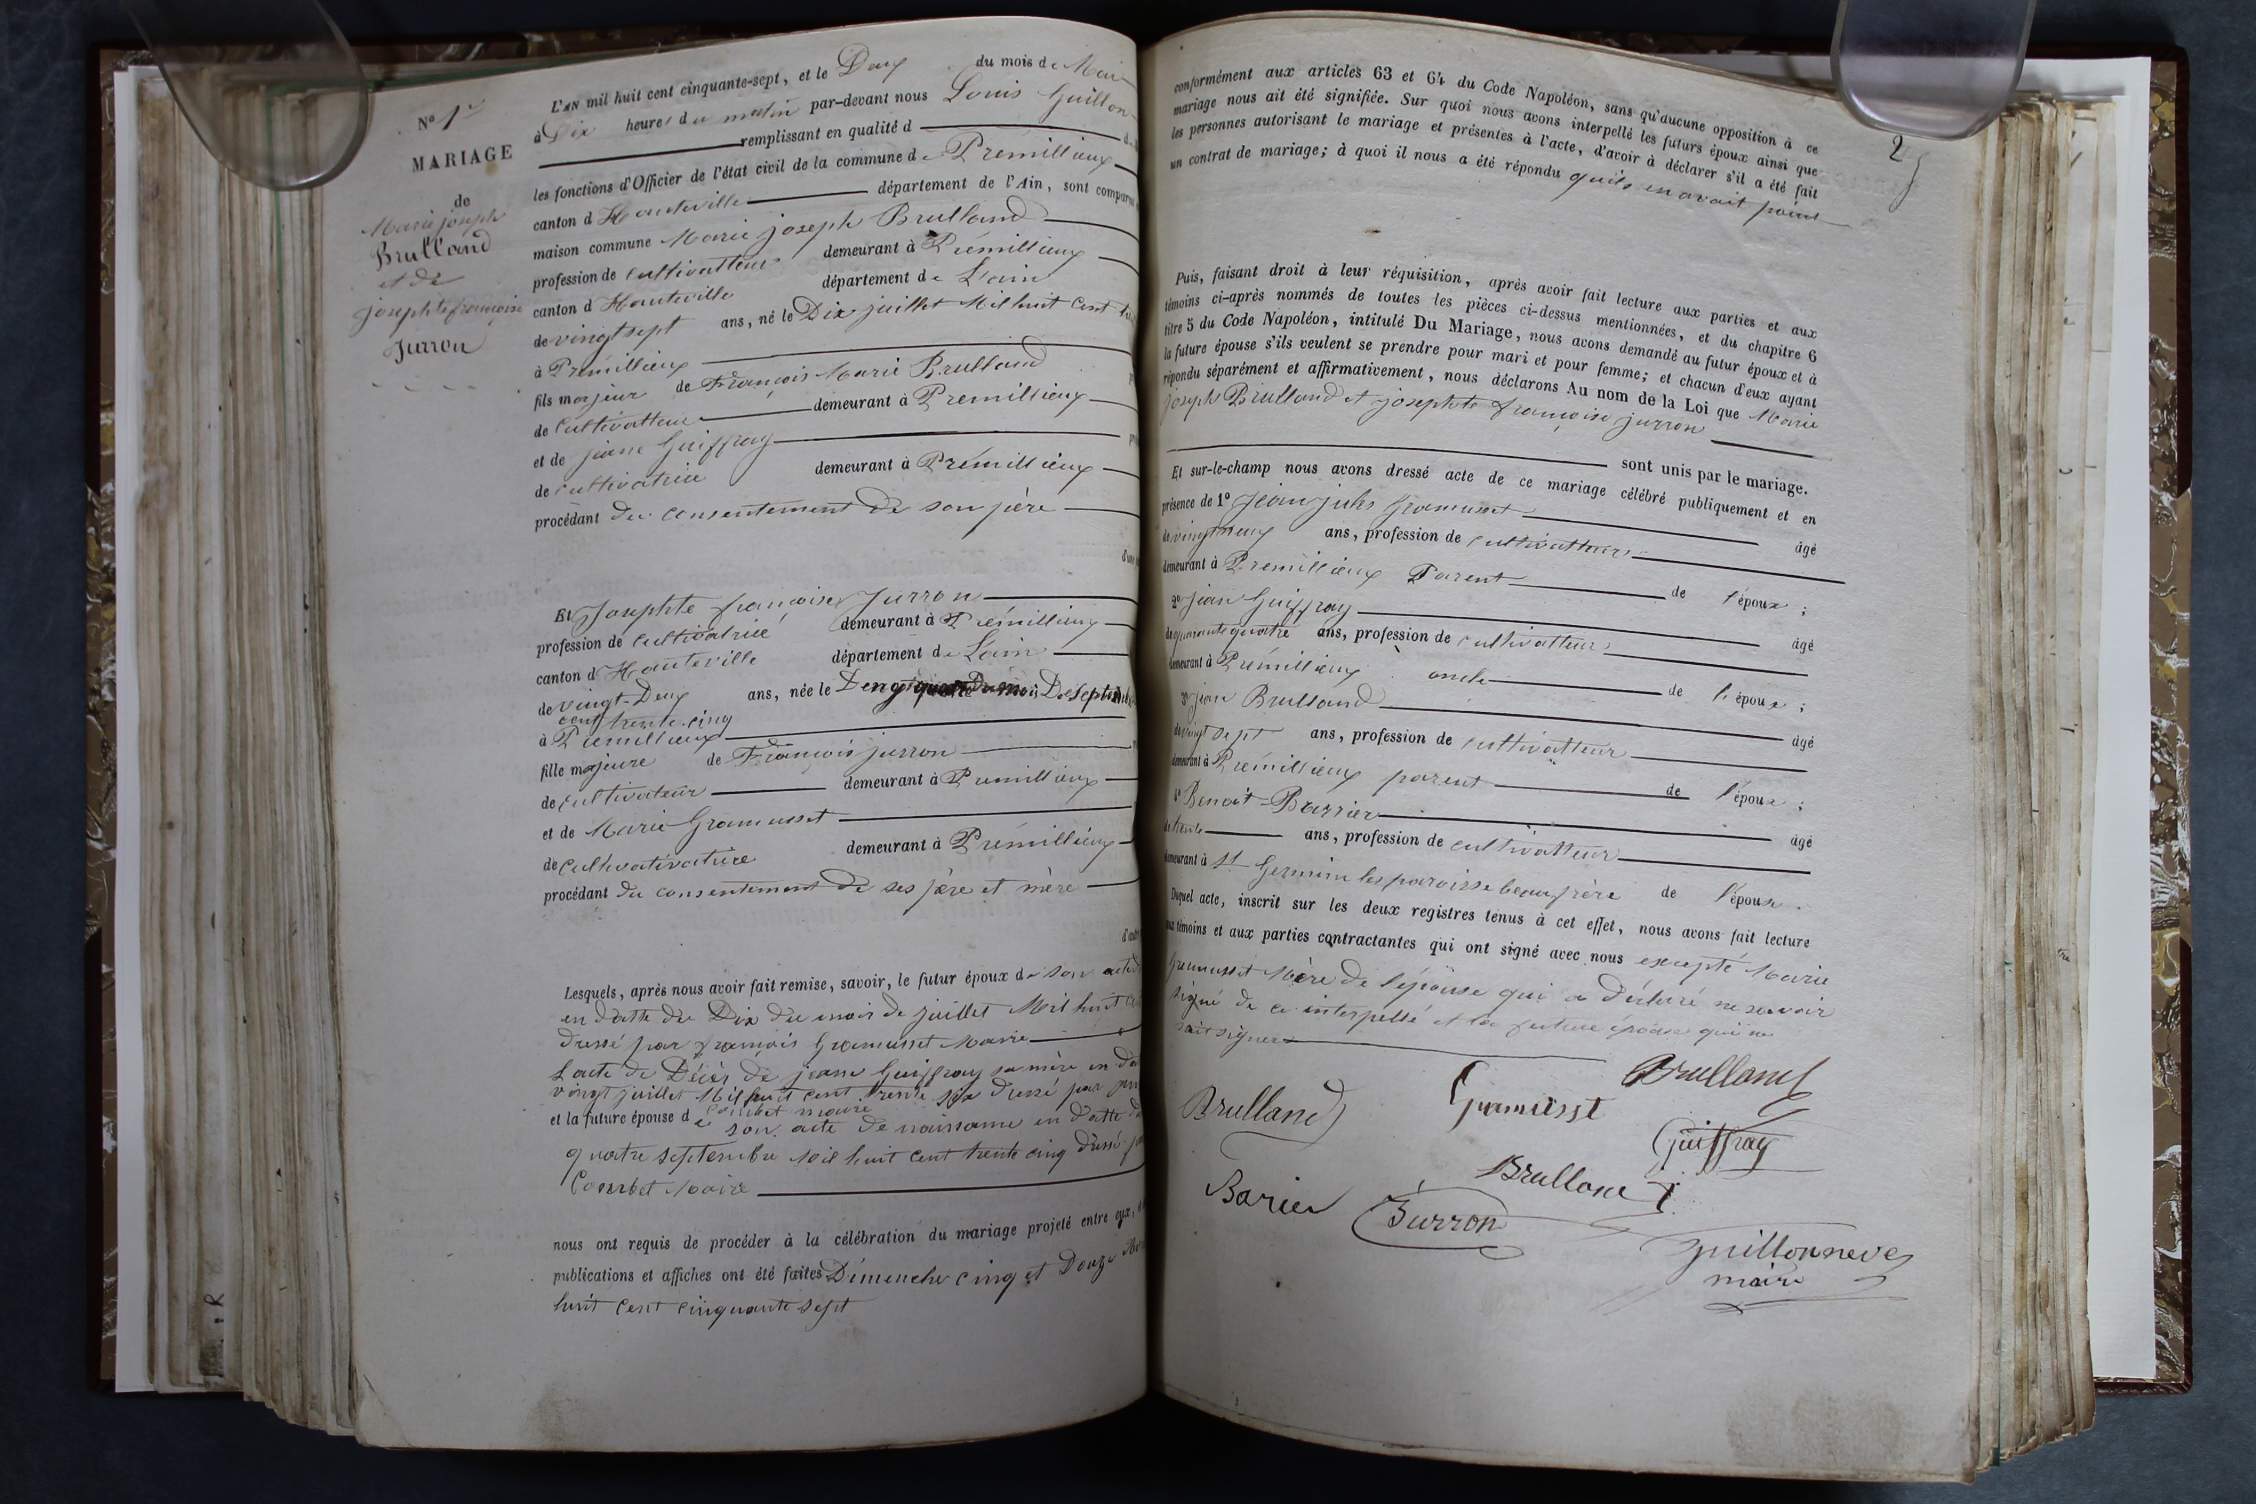 N° 1er
MARIAGE
de
Marie joseph
Brulland
et de
josephte françoise
Jurron
L'AN mil huit cent cinquante-sept, et le Deux du mois de Mai
à Dix heures du matin par-devant nous Louis Guillon
remplissant en qualité d
les fonctions d'Officier de l'état civil de la commune de Prémillieux
canton d Hauteville département de l'Ain, sont comparus
maison commune Marie joseph Brulland
profession de Cultivatteur demeurant à Prémillieux
canton d Hauteville département de L'ain
de vingt sept ans, né le Dix juillet Mil huit Cent
à Prémillieux
fils majeur de François Marie Brulland
de Cultivatteur demeurant à Prémillieux
et de jeane Guiffray
de cultivatrice demeurant à Prémillieux
procédant du consentement de son père
Et Josephte françoise Jurron
profession de Cultivatrice demeurant à Prémillieux
canton d'Hauteville département de Lain
de vingt-Deux ans, née le
cent trente-cinq
à Prémillieux
fille majeure de François jurron
de Cultivateur demeurant à Prémillieux
et de Marie Gramusset
de Cultivativatrice demeurant à Prémillieux
procédant du consentement de ses père et mère
Lesquels, après nous avoir fait remise, savoir, le futur époux de son acte
en datte du Dix du mois de juillet Mil huit
dressé par françois Gramusset Maire
L'acte de Décès de jeane Guiffray sa mère en
vingt juillet Mil huit cent trente six dressé par
Combet maire
et la future épouse de son acte de naissance en datte
quatre septembre Mil huit cent trente cinq dressé
Combet Maire
nous ont requis de procéder à la célébration du mariage projeté entre eux,
publications et affiches ont été faites Dimenche cinq et Douze
huit cent cinquante sept
2
conformément aux articles 63 et 64 du Code Napoléon, sans qu'aucune opposition à ce
mariage nous ait été signifiée. Sur quoi nous avons interpellé les futurs époux ainsi que
les personnes autorisant le mariage et présentes à l'acte, d'avoir à déclarer s'il a été fait
un contrat de mariage; à quoi il nous a été répondu quils en avait point
Puis, faisant droit à leur réquisition, après avoir fait lecture aux parties et aux
témoins ci-après nommés de toutes les pièces ci-dessus mentionnées, et du chapitre 6
titre 5 du Code Napoléon, intitulé Du Mariage, nous avons demandé au futur époux et à
la future épouse s'ils veulent se prendre pour mari et pour femme; et chacun d'eux ayant
répondu séparément et affirmativement, nous déclarons Au nom de la Loi que Marie
joseph Brulland et josephte françoise jurron
sont unis par le mariage.
Et sur-le-champ nous avons dressé acte de ce mariage célébré publiquement et en
présence de 1° Jean jules Gramusset âgé
de ans, profession de Cultivatteur
demeurant à Prémillieux Parent de l'époux ;
2° jean Guiffray âgé
de quarante quatre ans, profession de cultivatteur
demeurant à Prémillieux oncle de l'époux ;
3° jean Brulland âgé
de vingt sept ans, profession de cultivatteur
demeurant à Prémillieux parent de l'époux ;
4° Benoit-Barrier âgé
de trente ans, profession de cultivatteur
demeurant à St Germain les paroisse beau frère de l'époux.
Duquel acte, inscrit sur les deux registres tenus à cet effet, nous avons fait lecture
aux témoins et aux parties contractantes qui ont signé avec nous excepté Marie
Gramusset Mère de l'épouse qui a déclaré ne savoir
signé de ce interpellé et la future épouse qui ne
sait signer
Brulland
Gramusset
Brulland
Guiffray
Brulland
Barier
Jurron
Guillonneves
maire